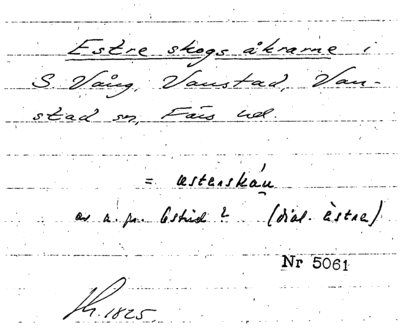 Estre skogs åkrarne i
S Vång, Vanstad, Van-
stad sn, Färs hd
= æstenskåu
av n. pr. Estrid? (dial. èstre)
Nr 5061
1825